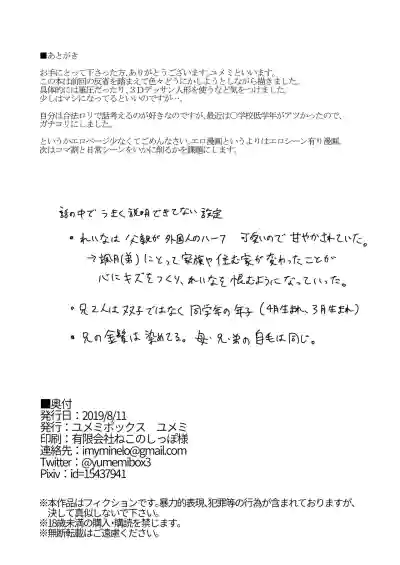 ■あとがき
お手にとって下さった方、ありがとうございます。ユメミといいます。
この本は前回の反省を踏まえて色々どうにかしようとしながら描きました。
具体的には筆圧だったり、3Dデッサン人形を使うなど気をつけました。
少しはマシになってるといいのですが…。
自分は合法ロリで話考えるのが好きなのですが、最近は〇学校低学年がアツかったので、
ガチロリにしました。
というかエロページ少なくてごめんなさい。エロ漫画というよりはエロシーン有り漫画。
次はコマ割と日常シーンをいかに削るかを課題にします。
話の中でうまく説明できてない設定
・れいなは父親が外国人のハーフ 可愛いので甘やかされていた。
→ (弟)にとって家族や住む家が変わったことが
心にキズをつくり、れいなを恨むようになっていった。
・兄2人は双子ではなく同学年の年子(4月生まれ、3月生まれ)
・兄の金髪は染めてる。母・兄・弟の自毛は同じ。
■奥付
発行日：2019/8/11
発行：ユメミボックス ユメミ
印刷：有限会社ねこのしっぽ様
連絡先：imyminelo@gmail.com
Twitter：@yumemibox3
Pixiv：id=15437941
※本作品はフィクションです。暴力的表現、犯罪等の行為が含まれておりますが、
決して真似しないで下さい。
※18歳未満の購入・購読を禁じます。
※無断転載はご遠慮ください。